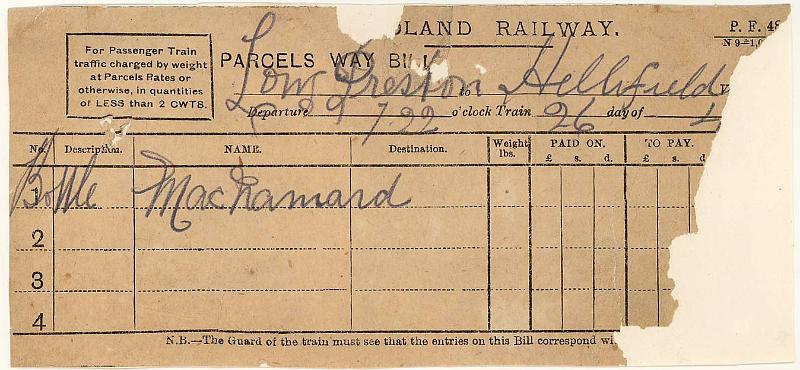 LAND RAILWAY.
P. F. 48
For Passenger Train
traffic charged by weight
at Parcels Rates or
otherwise, in quantities
of LESS than 2 CWTS.
PARCELS WAY BILL
Low Preston to Hellifield
Departure 7.22 o'clock Train 26 day of
No. Description. NAME. Destination. Weight lbs. PAID ON. TO PAY.
£ s. d. £ s. d.
1 Bottle MacNamard
2
3
4
N.B.—The Guard of the train must see that the entries on this Bill correspond